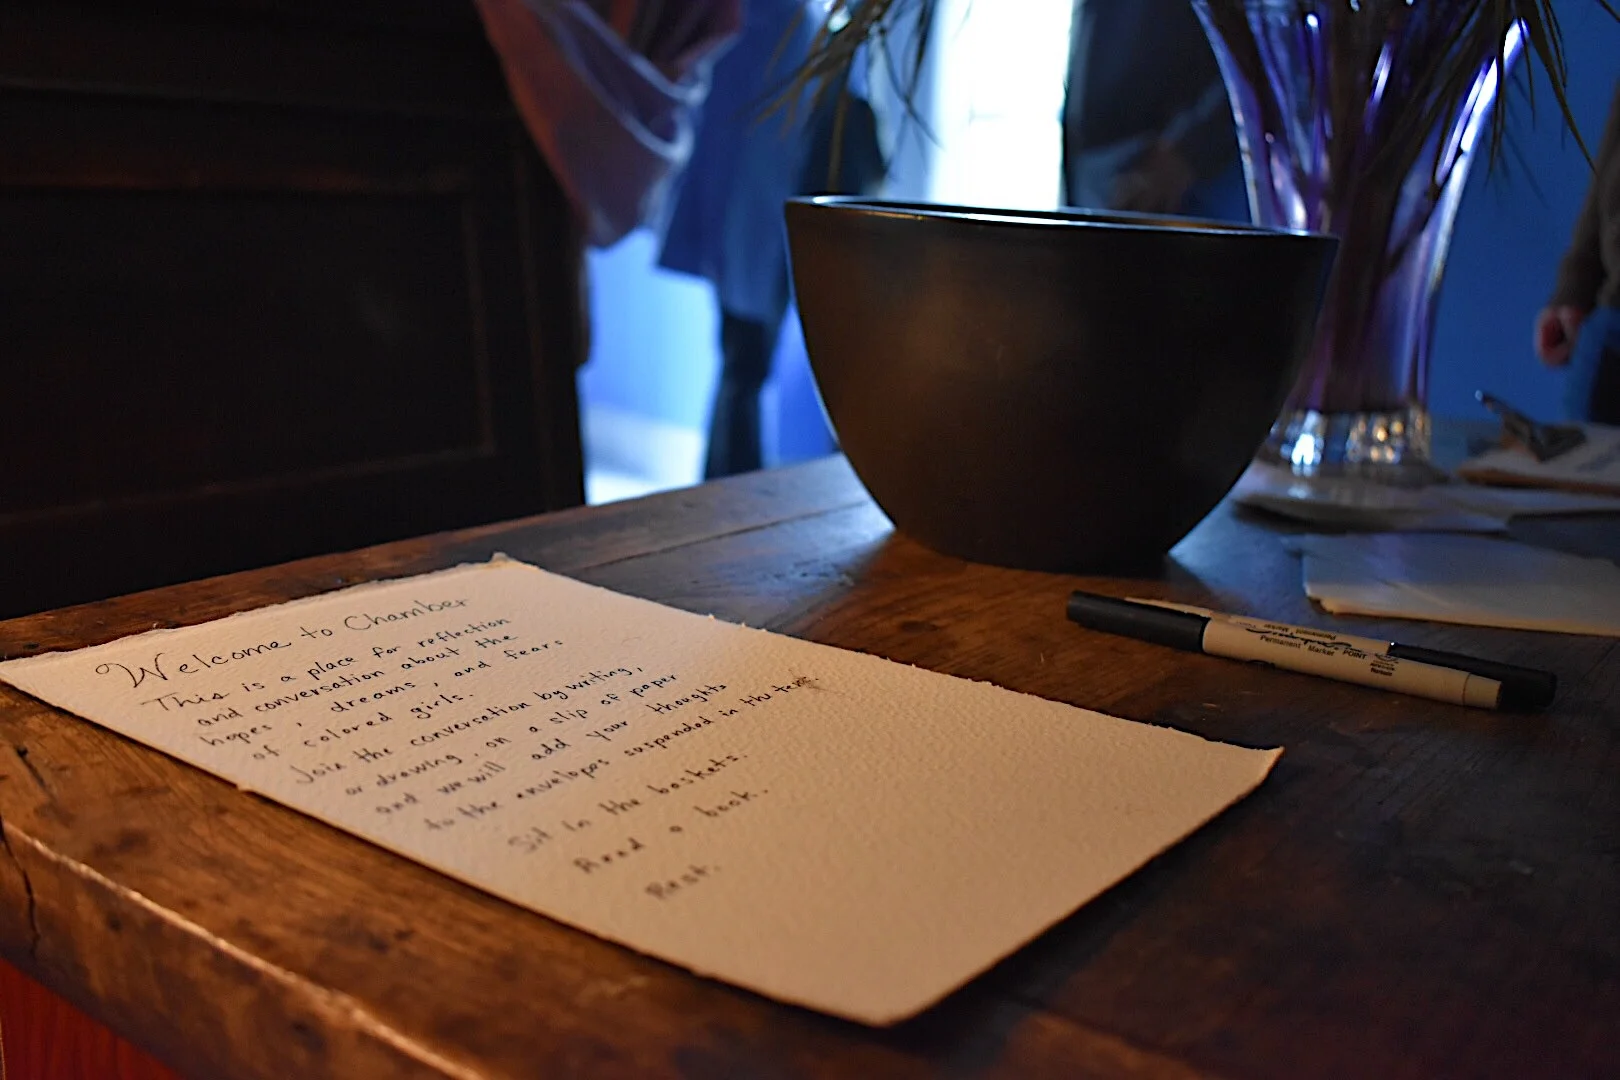 Welcome to Chamber
This is a place for reflection
and conversation about the
hopes, dreams, and fears
of colored girls.
Join the conversation by writing,
or drawing, on a slip of paper
and we will add your thoughts
to the envelopes suspended in the tent.
Sit in the baskets.
Read a book.
Rest.
Permanent Marker
Permanent Marker POINT